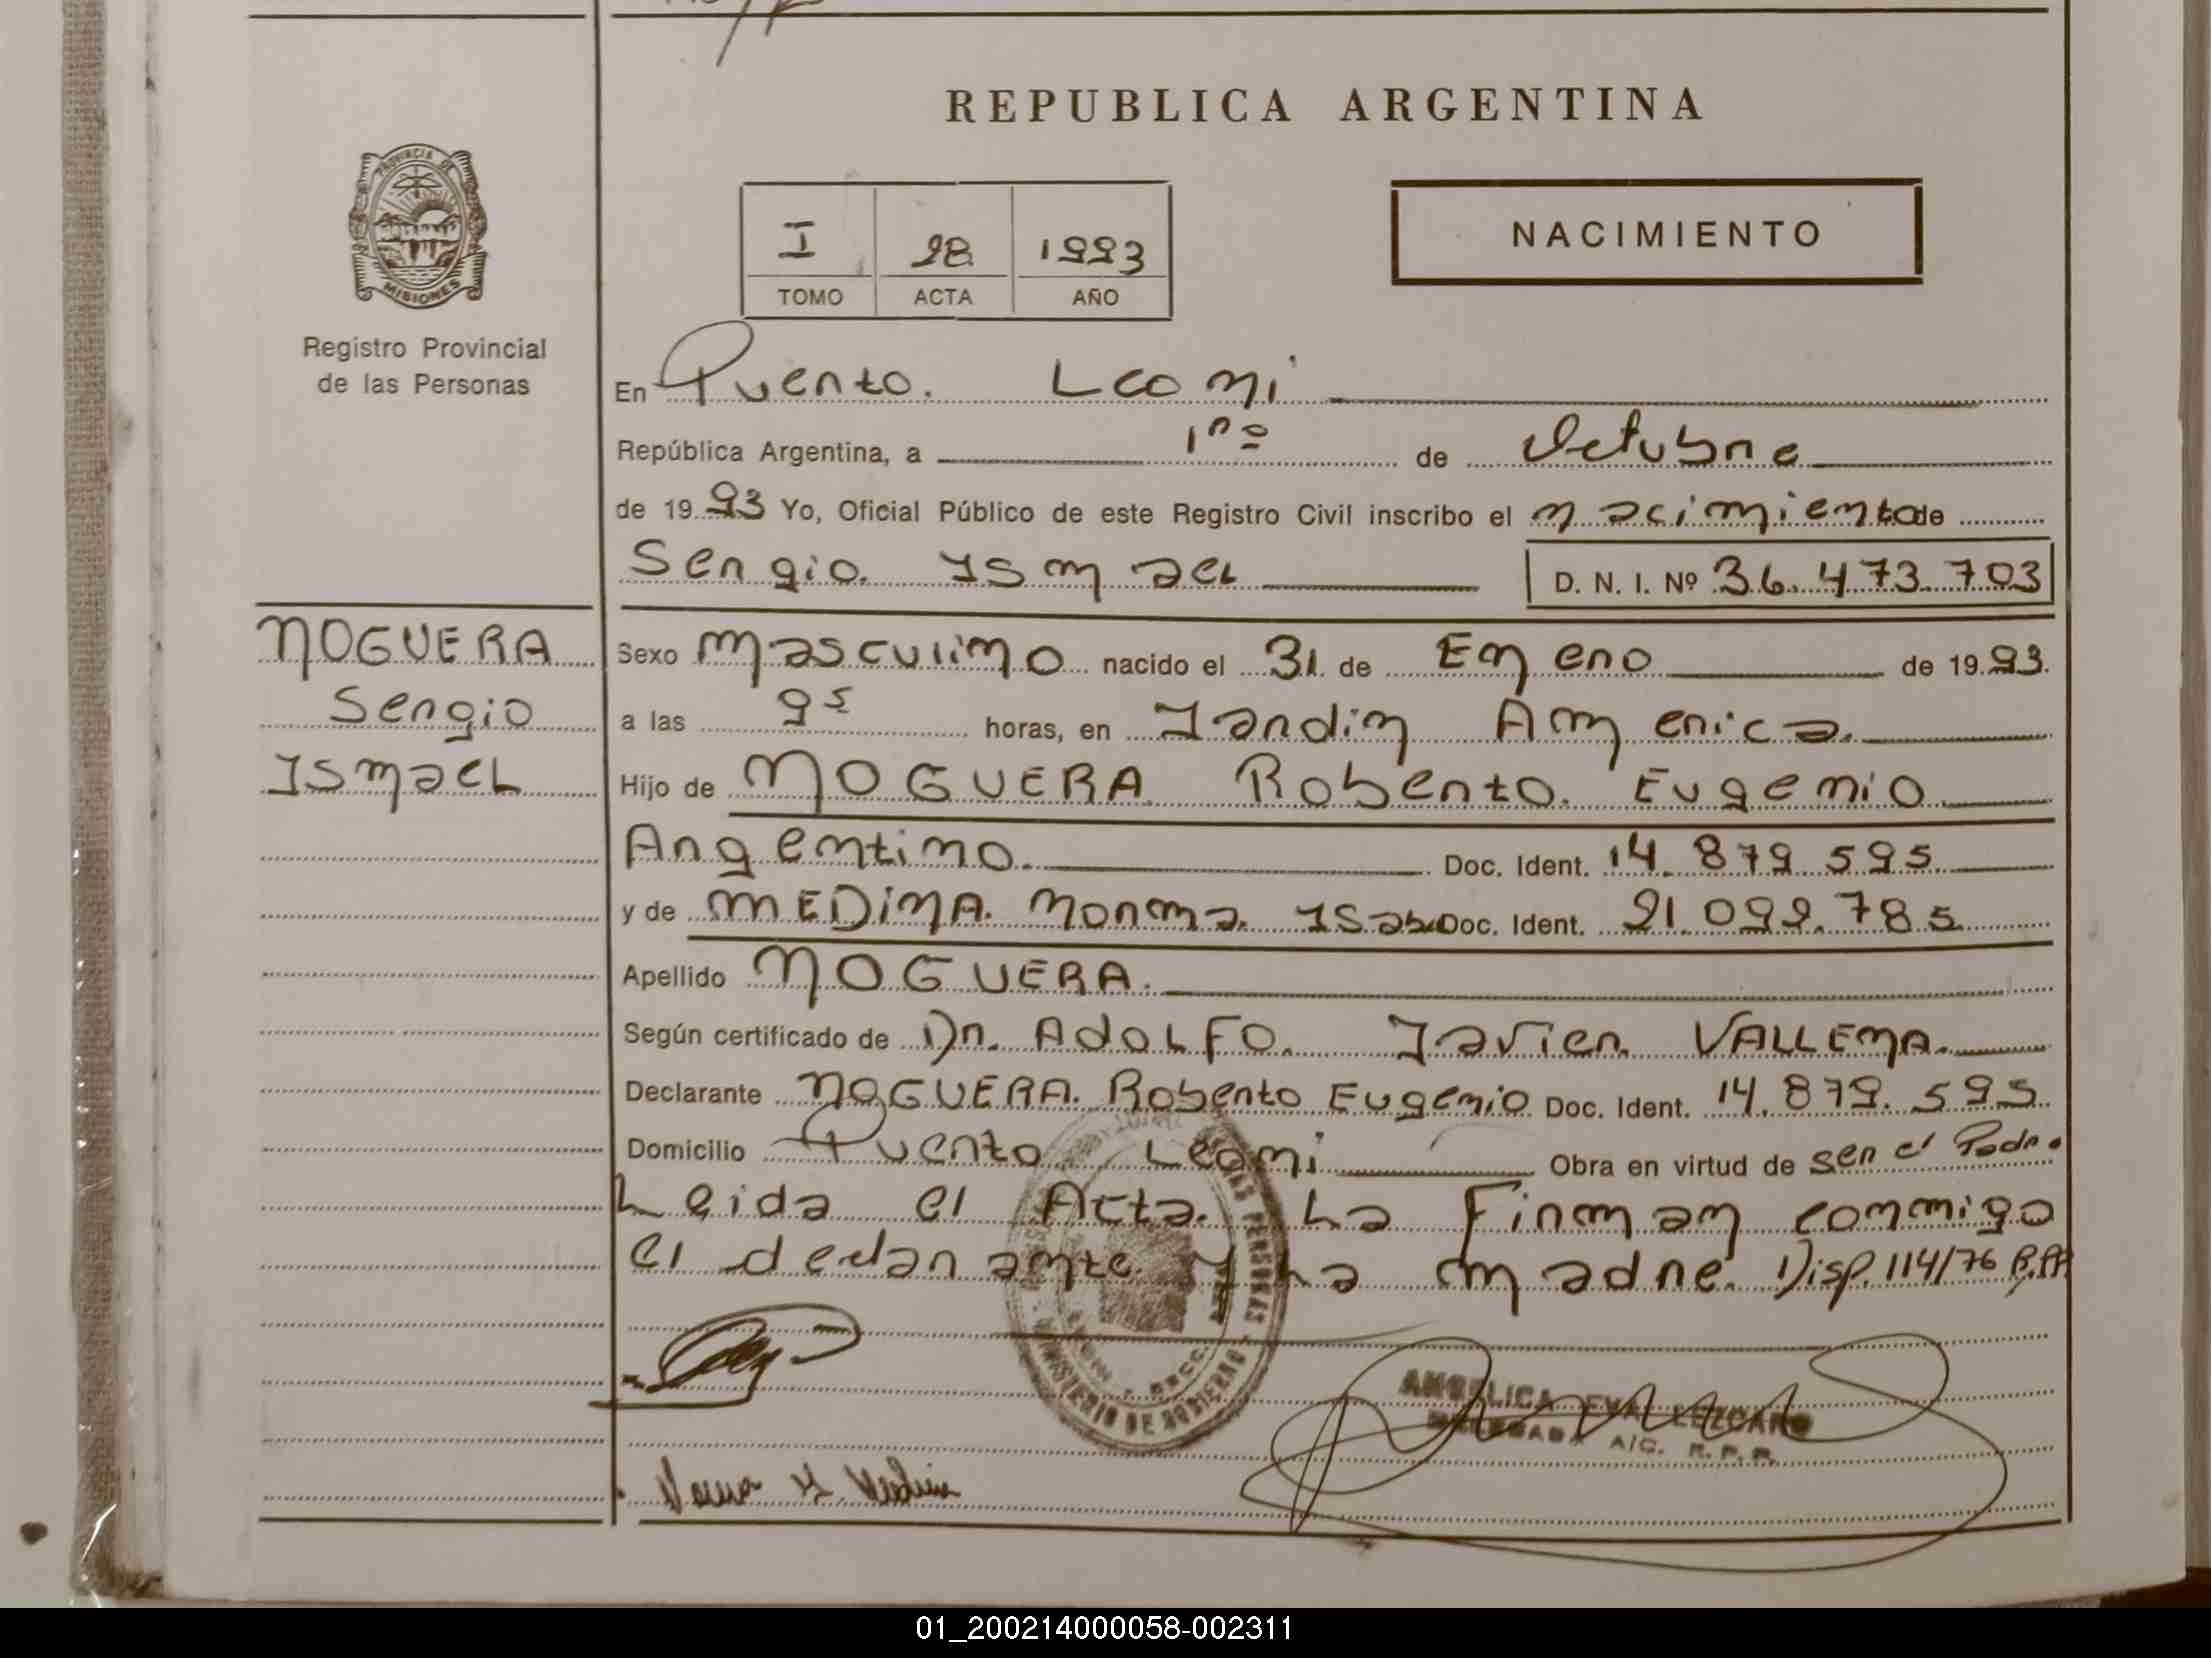 REPUBLICA ARGENTINA
PROVINCIA DE MISIONES
Registro Provincial
de las Personas
NACIMIENTO
I 98 1993
TOMO ACTA AÑO
En Puerto. Leoni
República Argentina, a 1ro de Octubre
de 1993 Yo, Oficial Público de este Registro Civil inscribo el nacimiento de
Sergio Ismael D. N. I. Nº 36.473.703
NOGUERA
Sergio
Ismael
Sexo Masculino nacido el 31 de Enero de 1993.
a las 9s horas, en Jardin America.
Hijo de NOGUERA Roberto. Eugenio
Argentino. Doc. Ident. 14.879.595.
y de MEDINA. Norma. Isab Doc. Ident. 21.092.785
Apellido NOGUERA.
Según certificado de Dr. ADOLFO. Javier VALLENA.
Declarante NOGUERA. Roberto Eugenio Doc. Ident. 14.879.595
Domicilio Puerto Leoni Obra en virtud de ser el Padre
Leida el Acta. La Firman conmigo
el declarante y La madre. Disp. 114/76
MINISTERIO DE GOBIERNO
ANGELICA EVA LEZCANO
DELEGADA A/C. R. P. P.
Norma I. Medina
01_200214000058-002311